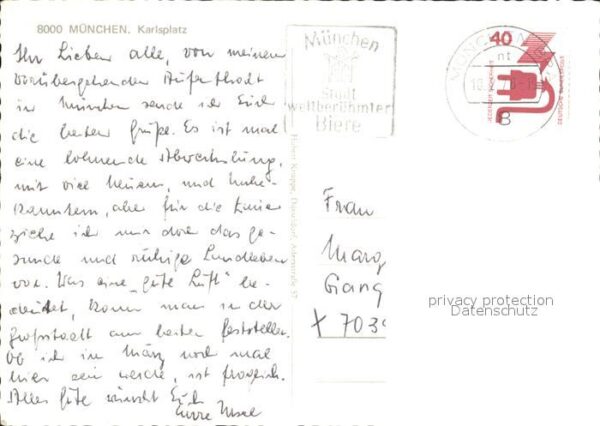 8000 MÜNCHEN. Karlsplatz
Ihr Lieben alle, von meinem
vorübergehenden Aufenthalt
in München sende ich Euch
die besten Grüße. Es ist mal
eine lohnende Abwechslung,
mit viel Neuem, und
aber für die
ziehe ich nur doch das ge-
sunde und ruhige Landleben
vor. Was eine "gute Luft" be-
deutet, kann man in der
Großstadt am besten feststellen.
Ob ich im März noch mal
hier sein werde, ist fraglich.
Alles Gute wünscht Euch
Eure
München
Stadt
weltberühmter
Biere
MÜNCHEN
40
8
Frau
Marg
Gang
X 7039
privacy protection
Datenschutz